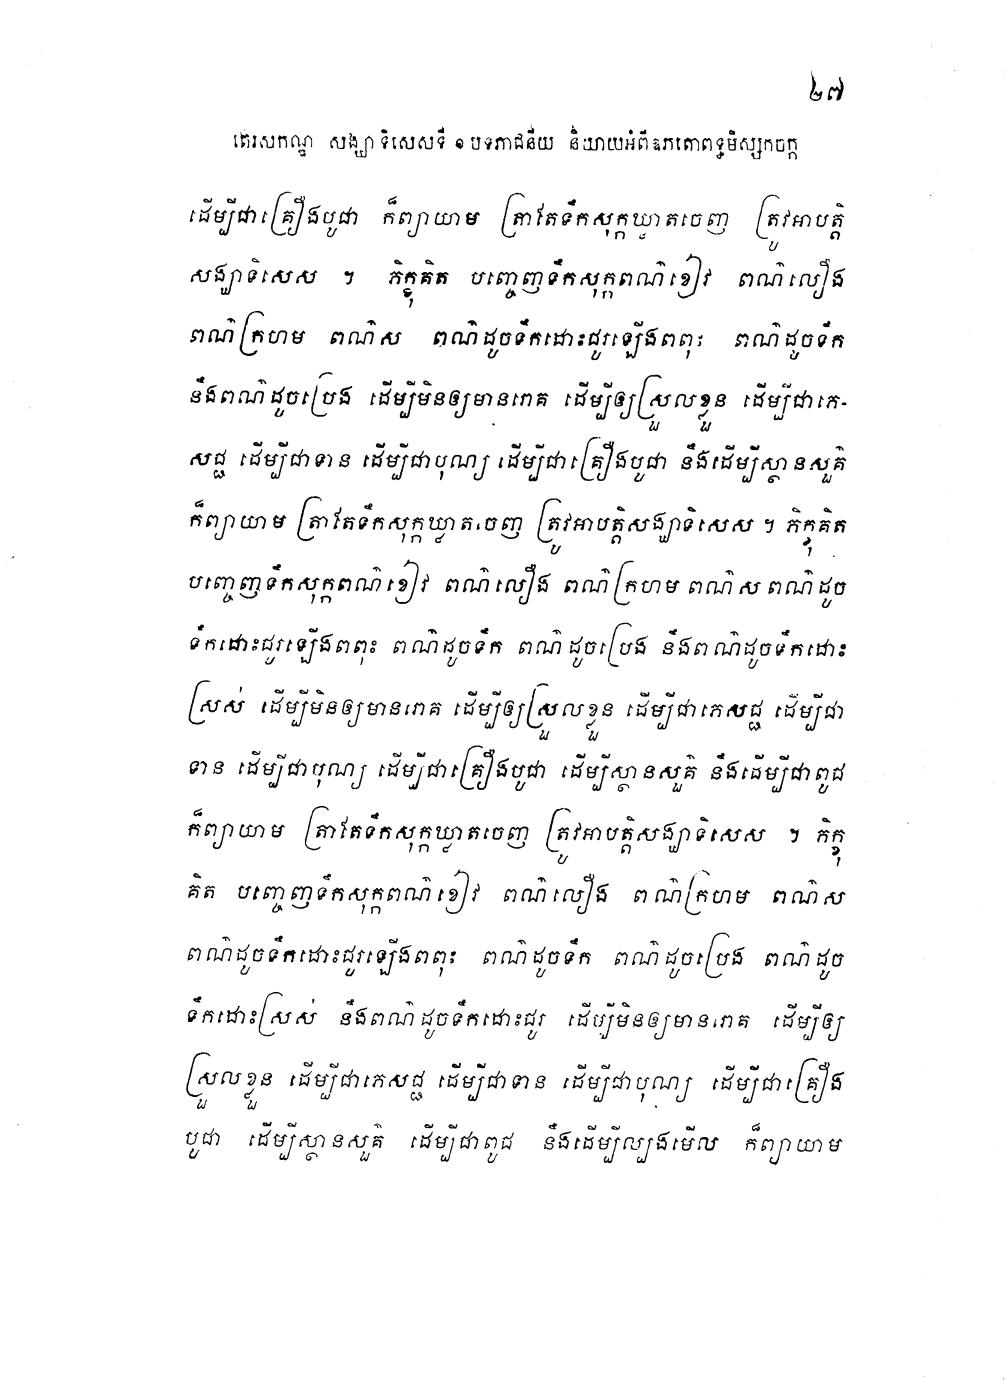 ២៧
តេរសកណ្ឌ សង្ឃាទិសេសទី ១ បទភាជនីយ និយាយអំពីឧភតោពទ្ធមិស្សកចក្ក
ដើម្បីជាគ្រឿងបូជា ក៏ព្យាយាម ត្រាតែទឹកសុក្កឃ្លាតចេញ ត្រូវអាបត្តិ
សង្ឃាទិសេស ។ ភិក្ខុគិត បញ្ចេញទឹកសុក្កពណ៌ខៀវ ពណ៌លឿង
ពណ៌ក្រហម ពណ៌ស ពណ៌ដូចទឹកដោះជូរឡើងពពុះ ពណ៌ដូចទឹក
នឹងពណ៌ដូចប្រេង ដើម្បីមិនឲ្យមានរោគ ដើម្បីឲ្យស្រួលខ្លួន ដើម្បីជាភេ-
សជ្ជ ដើម្បីជាទាន ដើម្បីជាបុណ្យ ដើម្បីជាគ្រឿងបូជា នឹងដើម្បីស្ថានសួគ៌
ក៏ព្យាយាម ត្រាតែទឹកសុក្កឃ្លាតចេញ ត្រូវអាបត្តិសង្ឃាទិសេស ។ ភិក្ខុគិត
បញ្ចេញទឹកសុក្កពណ៌ខៀវ ពណ៌លឿង ពណ៌ក្រហម ពណ៌ស ពណ៌ដូច
ទឹកដោះជូរឡើងពពុះ ពណ៌ដូចទឹក ពណ៌ដូចប្រេង នឹងពណ៌ដូចទឹកដោះ
ស្រស់ ដើម្បីមិនឲ្យមានរោគ ដើម្បីឲ្យស្រួលខ្លួន ដើម្បីជាភេសជ្ជ ដើម្បីជា
ទាន ដើម្បីជាបុណ្យ ដើម្បីជាគ្រឿងបូជា ដើម្បីស្ថានសួគ៌ នឹងដើម្បីជាពូជ
ក៏ព្យាយាម ត្រាតែទឹកសុក្កឃ្លាតចេញ ត្រូវអាបត្តិសង្ឃាទិសេស ។ ភិក្ខុ
គិត បញ្ចេញទឹកសុក្កពណ៌ខៀវ ពណ៌លឿង ពណ៌ក្រហម ពណ៌ស
ពណ៌ដូចទឹកដោះជូរឡើងពពុះ ពណ៌ដូចទឹក ពណ៌ដូចប្រេង ពណ៌ដូច
ទឹកដោះស្រស់ នឹងពណ៌ដូចទឹកដោះជូរ ដើម្បីមិនឲ្យមានរោគ ដើម្បីឲ្យ
ស្រួលខ្លួន ដើម្បីជាភេសជ្ជ ដើម្បីជាទាន ដើម្បីជាបុណ្យ ដើម្បីជាគ្រឿង
បូជា ដើម្បីស្ថានសួគ៌ ដើម្បីជាពូជ នឹងដើម្បីល្បងមើល ក៏ព្យាយាម